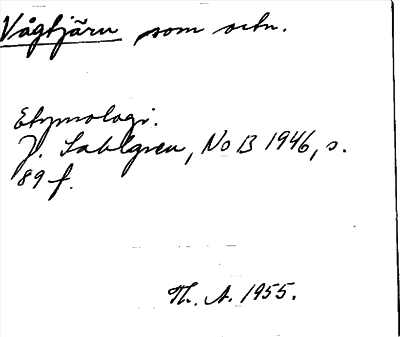 Vågtjärn som ortn.
Etymologi.
J. Sahlgren, NoB 1946, s.
89 f.
Th. A. 1955.